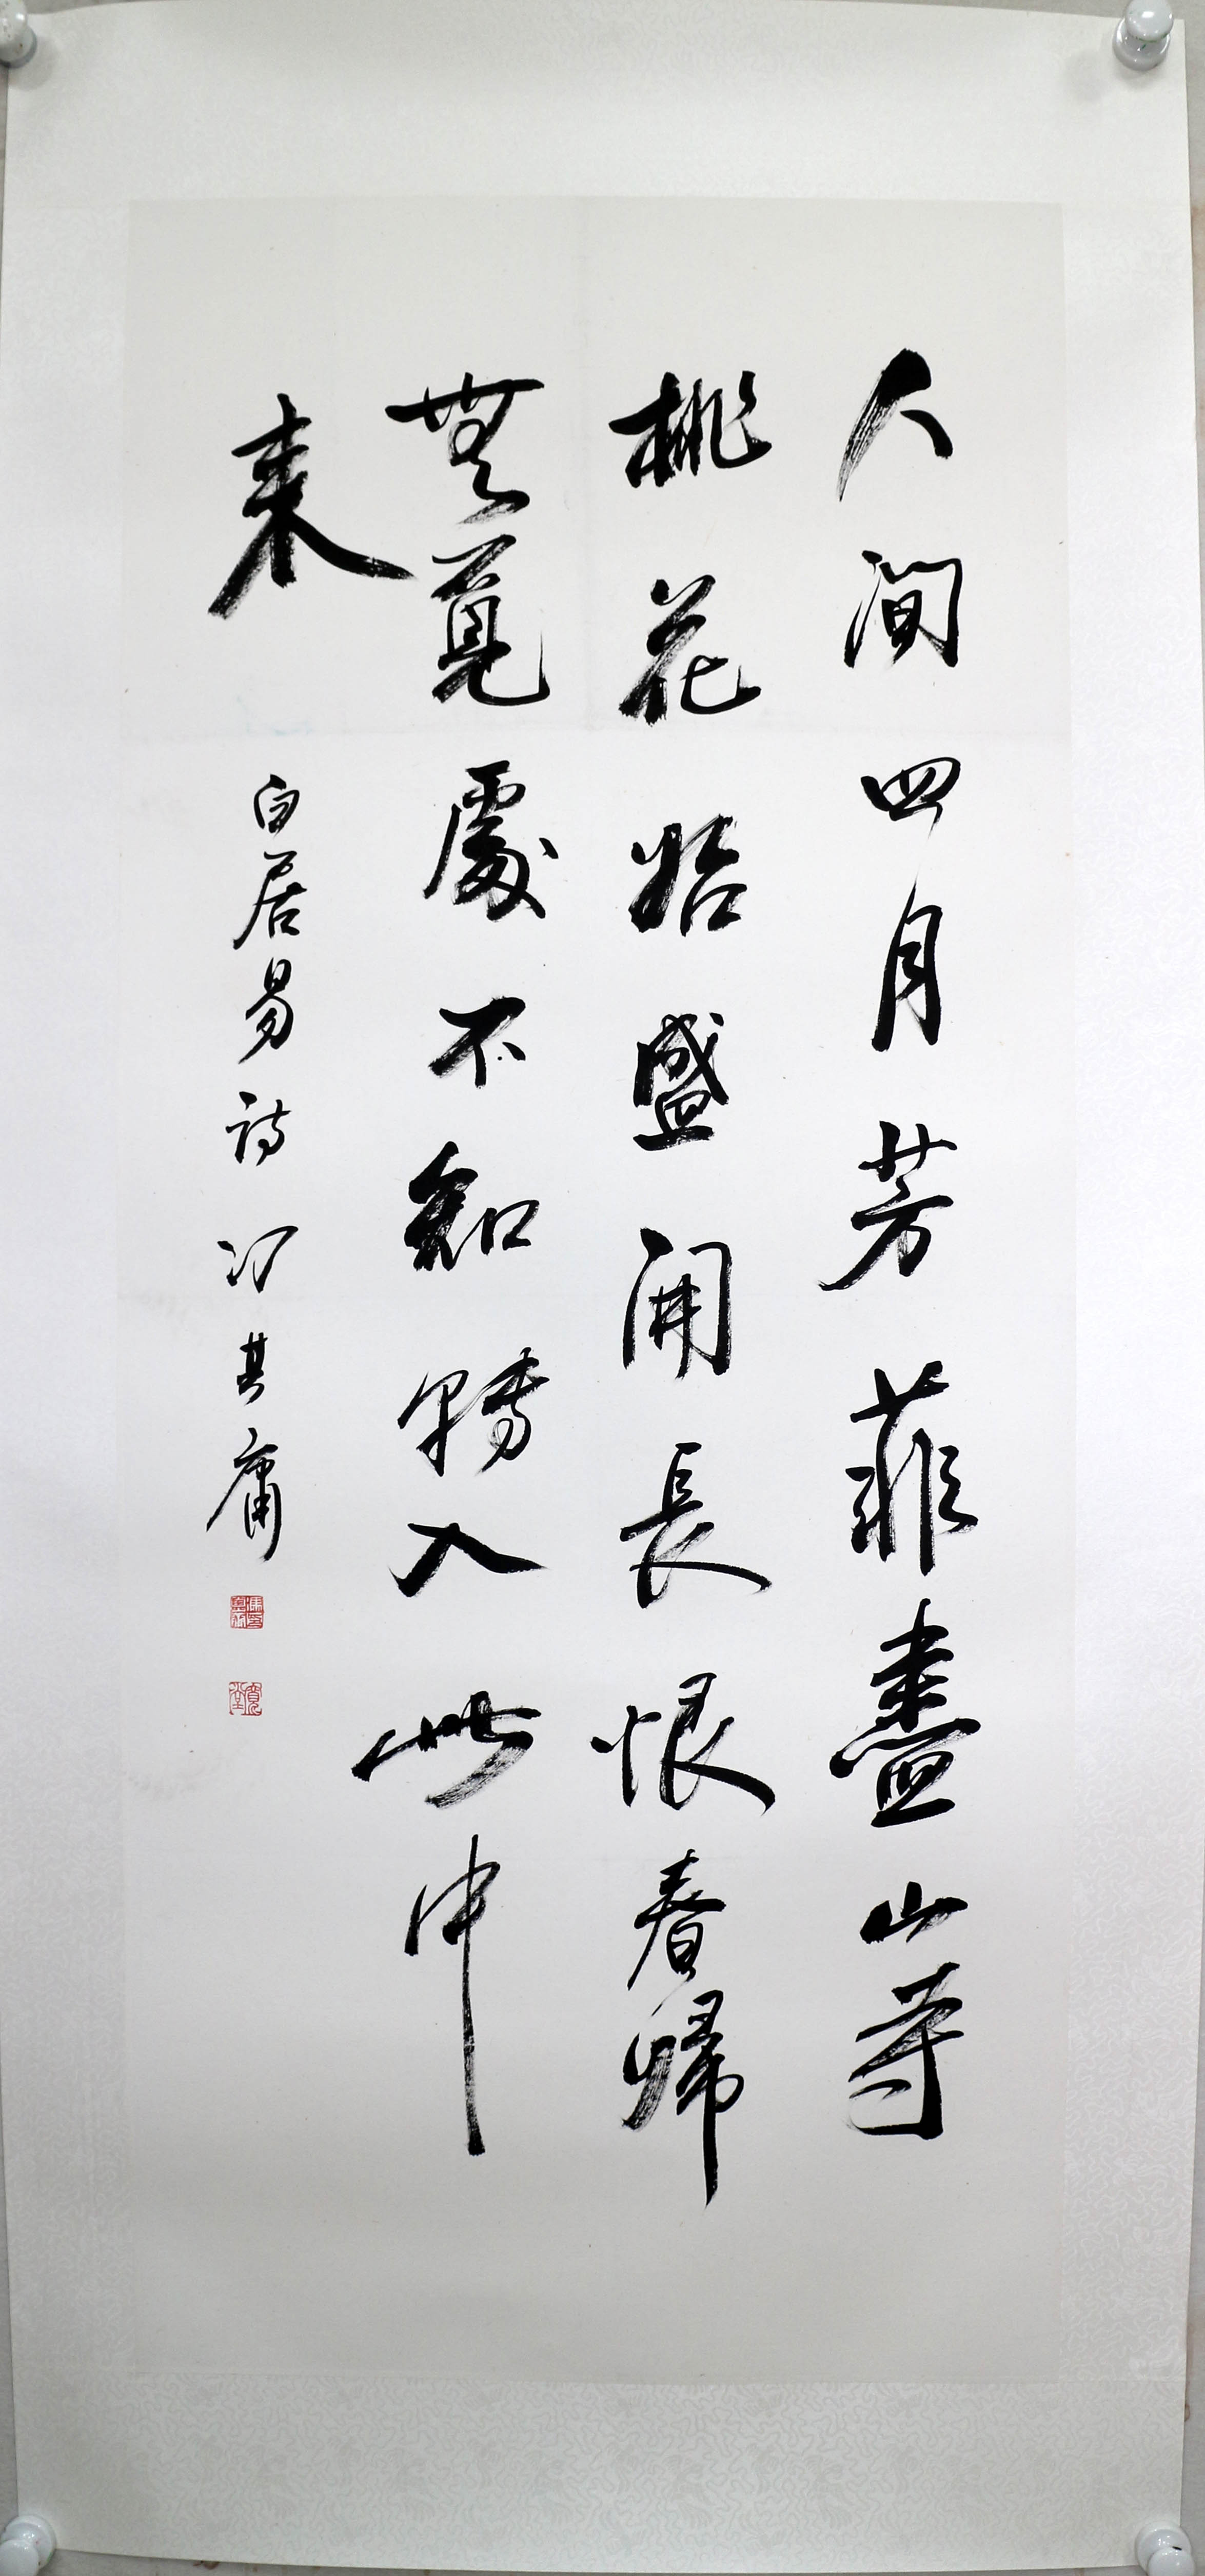 人間四月芳菲盡山寺
桃花始盛開長恨春歸
無覓處不知轉入此中
来
白居易詩 馮其庸